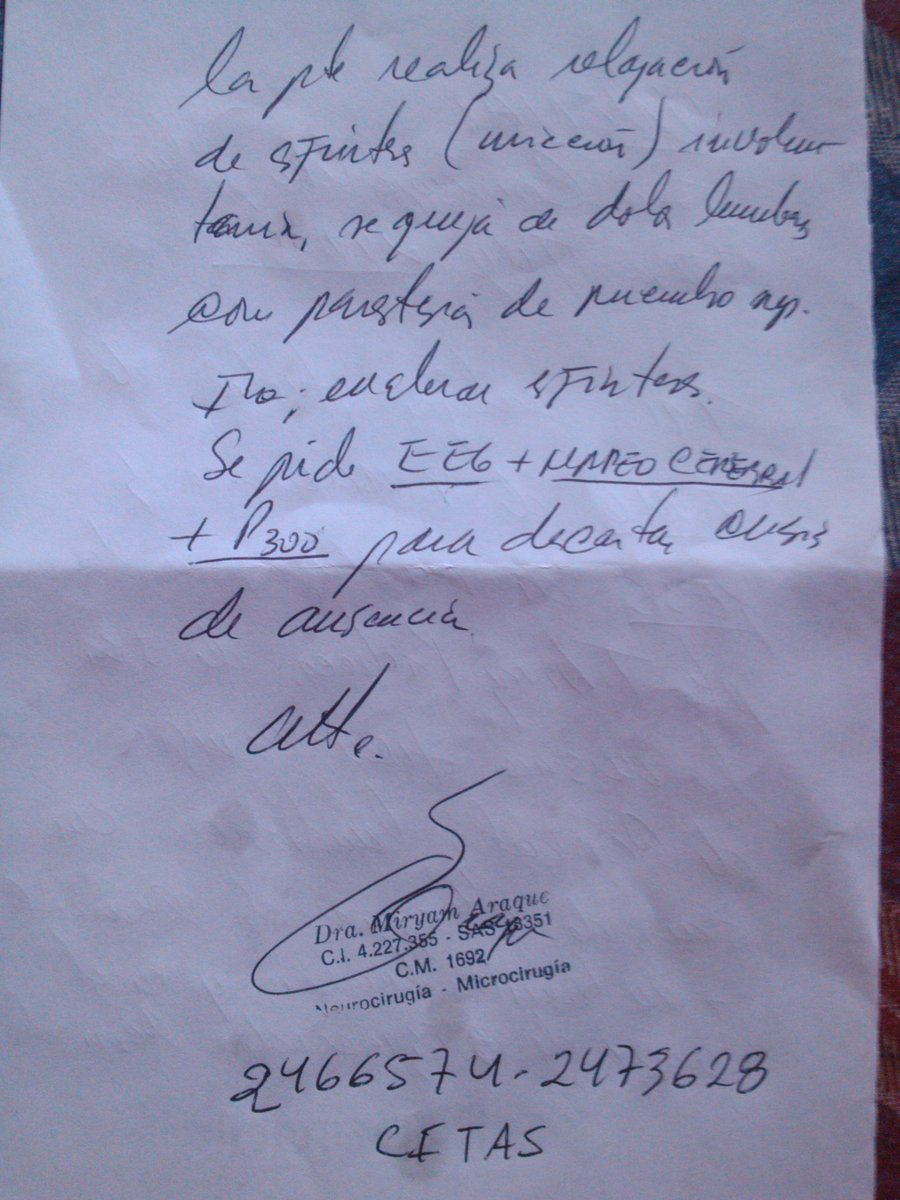 la pte realiza relajación
de esfinter (micción) involun
taria, se queja de dolor lumbar
con parestesia de miembro
evaluar esfinter.
Se pide EEG + MAPEO CEREBRAL
+ P300 para descartar crisis
de ausencia
Atte.
Dra. Miryam Araque
C.I. 4.227.355 - SAS 18351
C.M. 1692
Neurocirugía - Microcirugía
2466574 - 2473628
CETAS